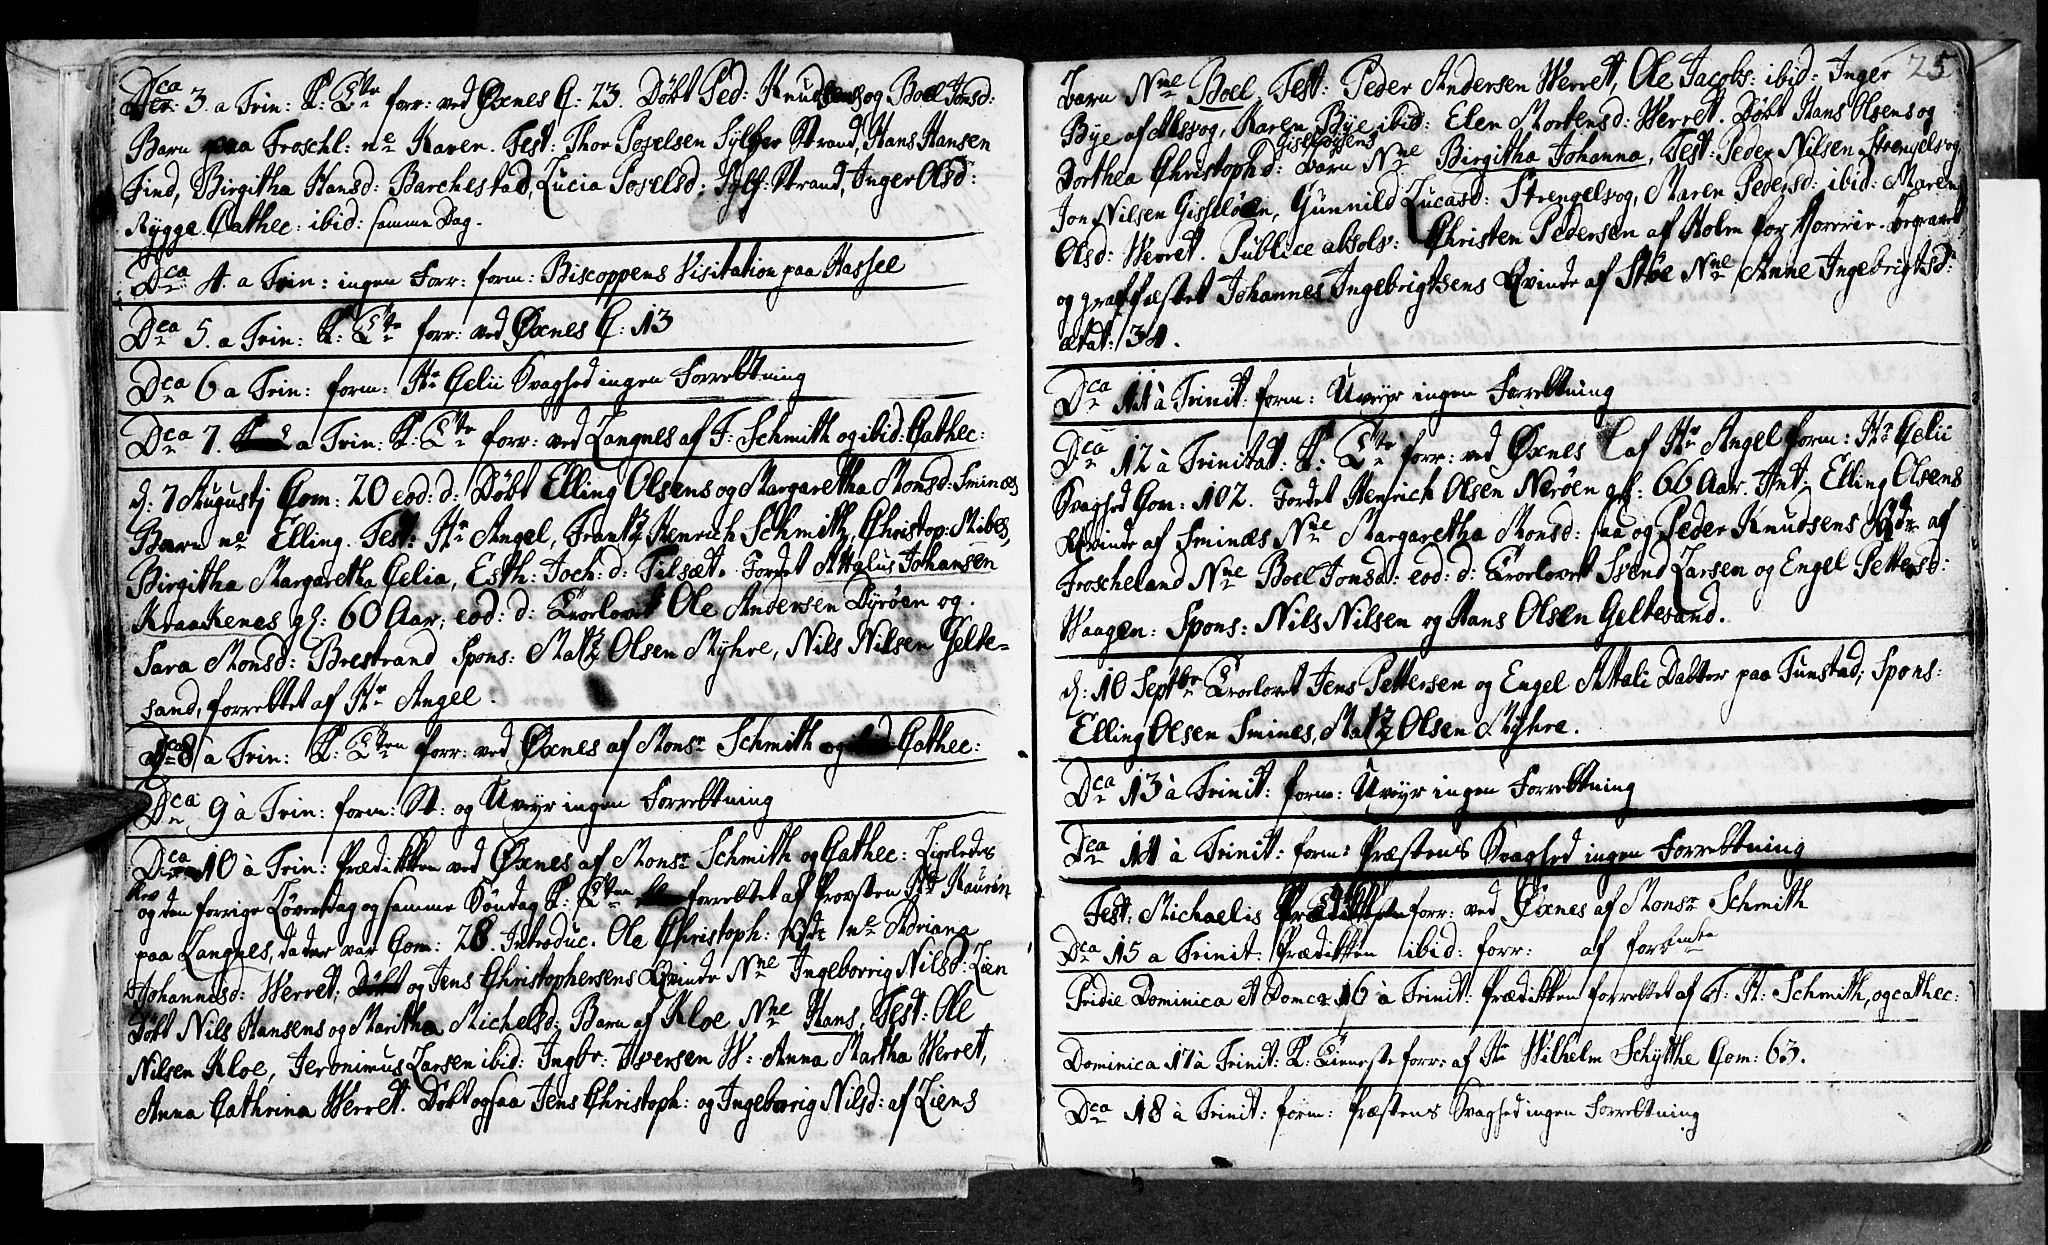 Dca 3. a Trin: K: Tste forr: ved Øxnes C: 23. Døbt Ped: Knudsens og Boel Jonsd:
Barn paa Froschl: ne Karen. Test: Thor Poselsen Sylfer Strand, Hans Hansen
Find, Birgitha Hansd: Barchestad, Lucia Poselsd: Sylf: Strand, Inger Olsd:
Rygge. Cathec: ibid: samme Dag.
Dca 4. a Trin: ingen Forr: form: Biscoppens Visitation paa Hassel
Dca 5. a Trin: K: Tste forr: ved Øxnes C: 13
Dca 6 a Trin: form: Hr Celii Svaghed ingen Forrettning
Dca 7. a Trin: K: Tste forr: ved Langnes af F: Schmith og ibid: Cathec:
d: 7 Augustj Com: 20 eod: d: Døbt Elling Olsens og Margaretha Monsd: Sminæs
Barn ne Elling. Test: Hr Angel, Frantz Henrich Schmith, Christop: Mibes,
Birgitha Margaretha Celia, Esth: Joch: d: Tilsæt. Jordet Attalus Johansen
Kraakenes gl: 60 Aar, eod: d: Troelovet Ole Andersen Dyrøen og
Sara Monsd: Brestrand Spons: Matz Olsen Myhre, Nils Nilsen Gelte-
sand, forrettet af Hr Angel.
Dca 8 a Trin: K: Tsten forr: ved Øxnes af Monsr Schmith og ibid: Cathec:
Dca 9 à Trin: form: St: og Uveyr ingen Forrettning
Dca 10 à Trin: Prædikken ved Øxnes af Monsr Schmith og Cathec: Ligeledes
og den forrige Løverdag og samme Søndag K: Tsten forrettet af Provsten Hr Kaurin
paa Langnes, da der var Com: 28. Introduc. Ole Christoph: Qde ne Adriana
Johannesd: Werret, og Jens Christophersens Qvinde Nne Ingeborrig Nilsd: Lien
Døbt Nils Hansens og Maritha Michelsd: Barn af Kloe Nne Hans, Test: Ole
Nilsen Kloe, Jeronimus Larsen ibid: Ingbr: Iversen W: Anna Martha Werret,
Anna Cathrina Werret. Døbt ogsaa Jens Christoph: og Ingeborrig Nilsd: af Liens
25
Barn Nne Boel, Test: Peder Andersen Werret, Ole Jacobs: ibid: Inger
Bye af Alsvog, Karen Bye ibid: Elen Mortensd: Werret. Døbt Hans Olsens og
Dorthea Christophd: Gisløens Barn Nne Birgitha Johanna, Test: Peder Nilsen Strengelvog
Jon Nilsen Gisløen, Gunnild Lucasd: Strengelvog, Maren Pedersd: ibid: Maren
Olsd: Werret. Publice absolv: Christen Pedersen af Holm for Horrerie. Begravet
og graffæstet Johannes Ingebrigtsens Qvinde af Støe Nne Anne Ingebrigtsd:
ætat: 34.
Dca 11 à Trinit: form: Uveyr ingen Forrettning
Dca 12 à Trinitat: K: Tste forr: ved Øxnes af Hr Angel form: Hr Celii
Svaghed Com: 102. Jordet Henrich Olsen Nerøen gl: 66 Aar. Int: Elling Olsens
Qvinde af Sminæs Nne Margaretha Monsd: saa og Peder Knudsens Qde af
Froscheland Nne Boel Jonsd: eod: d: Troelovet Svend Larsen og Engel Pettersd:
Waagen: Spons: Nils Nilsen og Hans Olsen Geltesand.
d: 10 Septbr Troelovet Jens Pettersen og Engel Attali Datter paa Tunstad, Spons:
Elling Olsen Smines, Matz Olsen Myhre.
Dca 13 à Trinit: form: Uveyr ingen Forrettning
Dca 14 à Trinit: form: Præstens Svaghed ingen Forrettning
Fest: Michaelis Prædikken forr: ved Øxnes af Monsr Schmith
Dca 15 a Trinit: Prædikken ibid: forr: af forbmte
Pridie Dominica et Domca 16 à Trinit: Prædikken forrettet af F: H: Schmith, og cathec:
Dominica 17 à Trinit: K: Tieneste forr: af Hr Wilhelm Schytthe Com: 63.
Dca 18 à Trinit: form: Præstens Svaghed ingen Forrettning